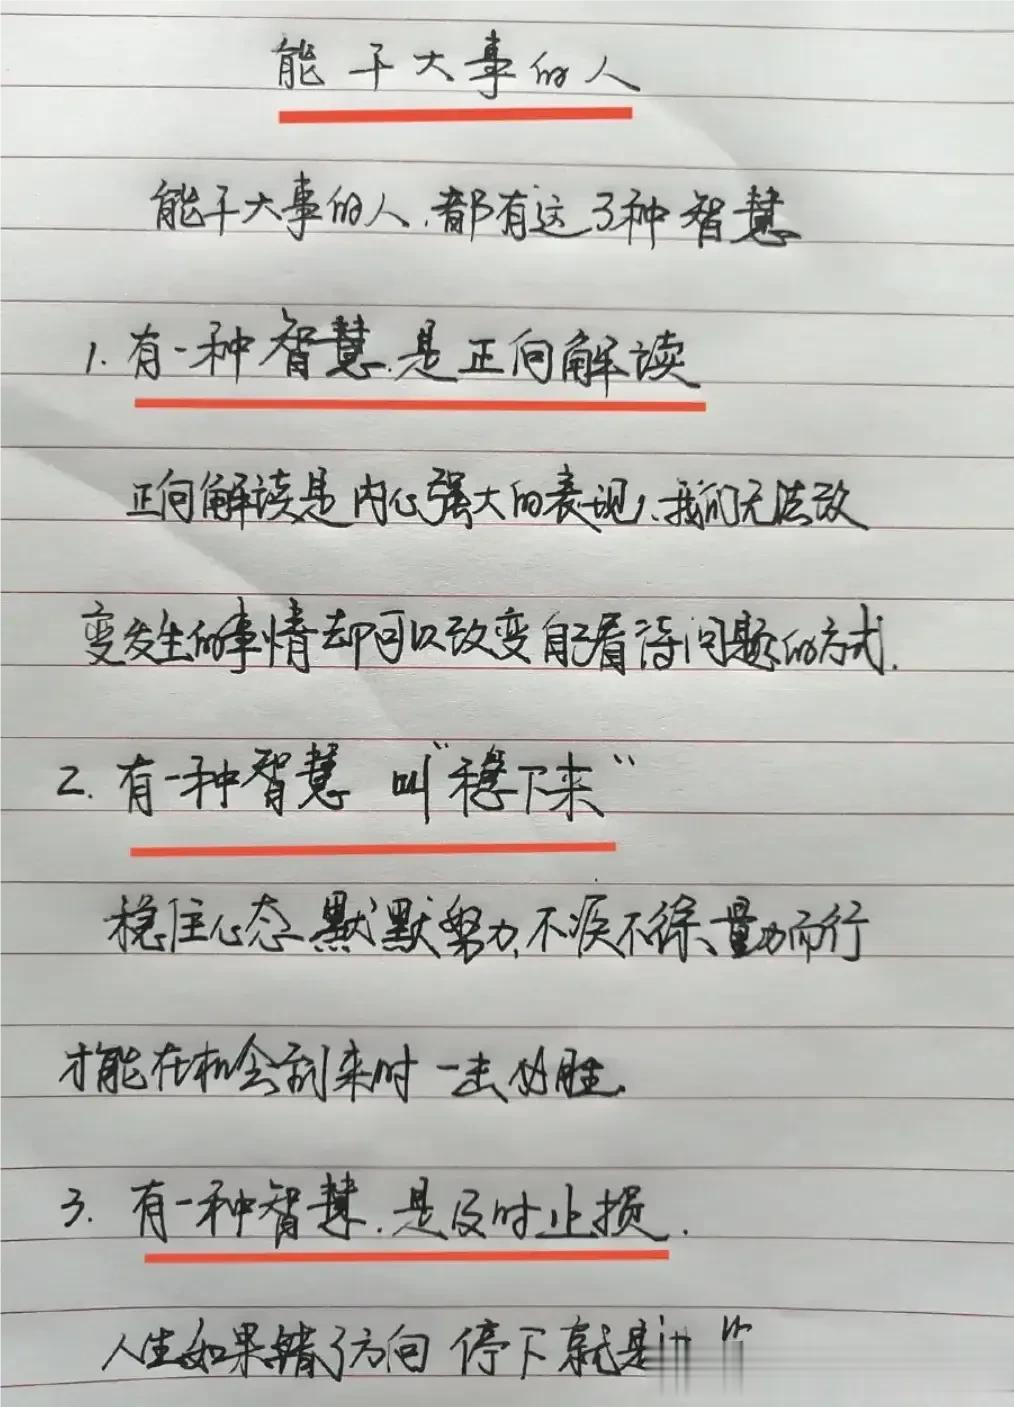 能干大事的人
能干大事的人,都有这3种智慧
1.有一种智慧.是正向解读
正向解读是内心强大的表现,我们无法改
变发生的事情却可以改变自己看待问题的方式.
2.有一种智慧 叫"稳下来"
稳住心态 默默努力,不疾不徐、量力而行
才能在机会到来时 一击必胜.
3.有一种智慧.是及时止损.
人生如果错了方向 停下就是